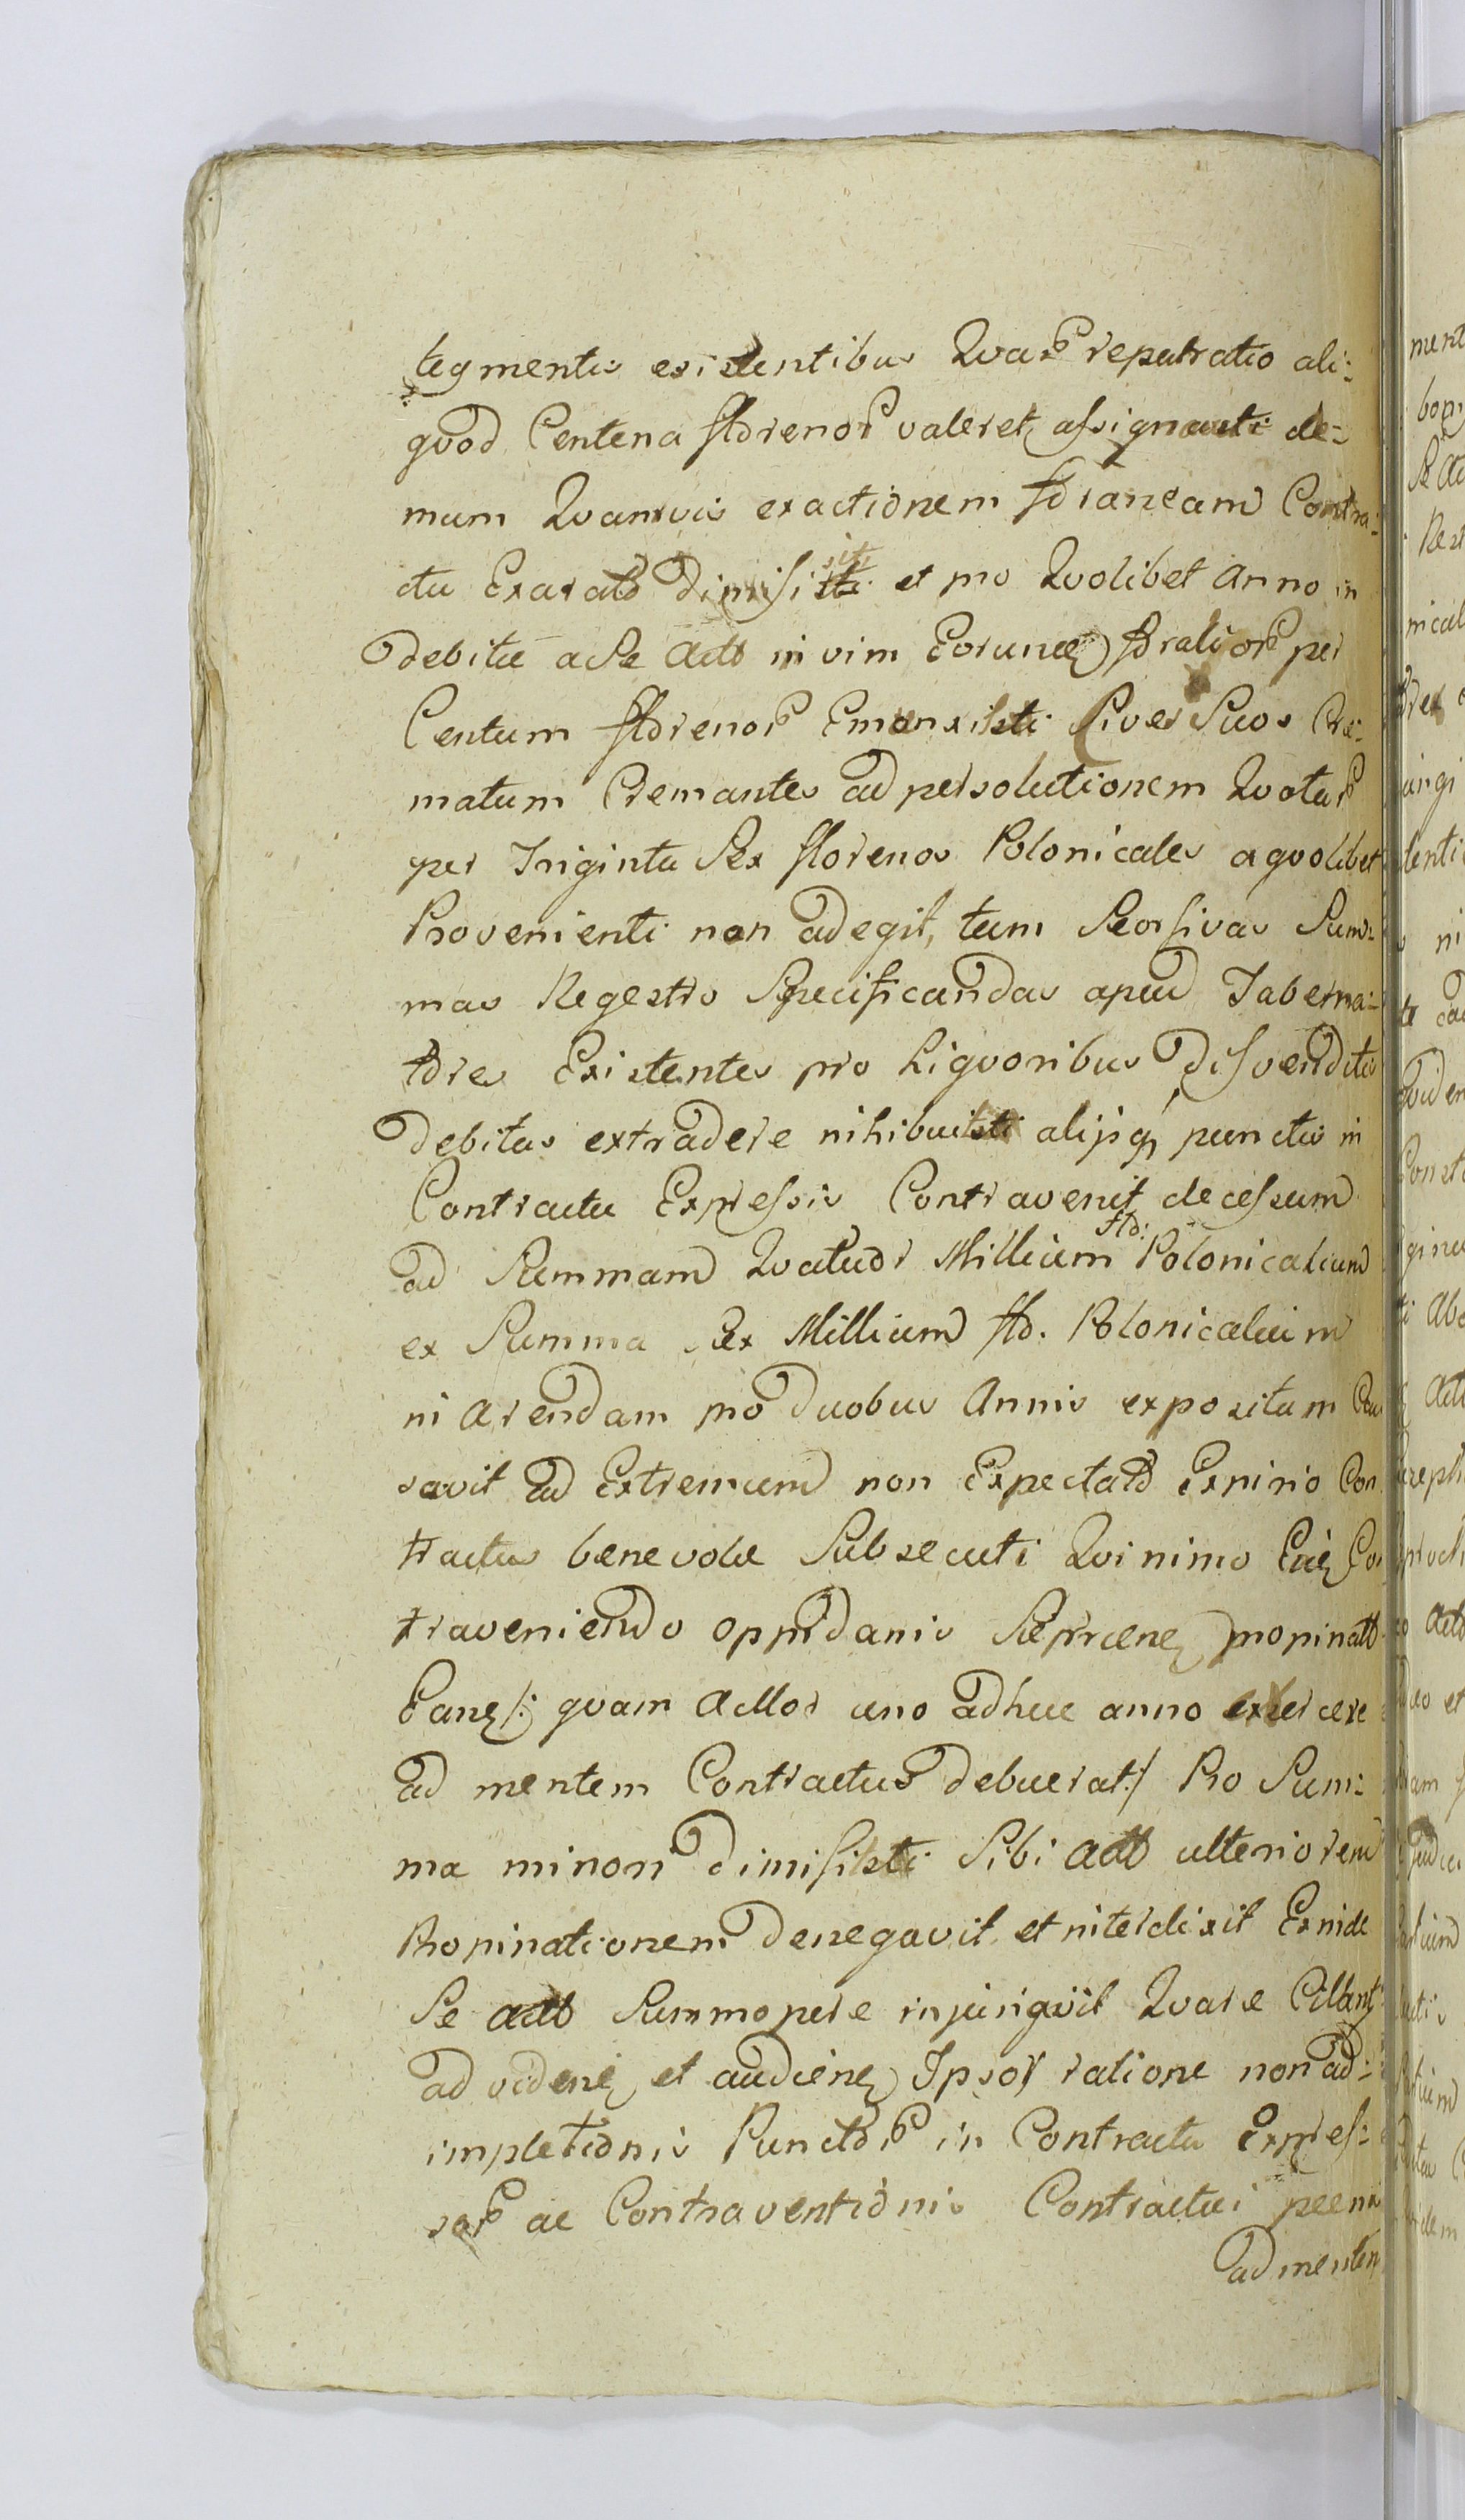 tegmentis existentibus Quar reparatio ali:
quod Centena florenor valeret, assignasti de:
mum Quamvis exactionem foraneam Contra:
ctu Exarato Dimisisti et pro Quolibet Anno in
Debitæ a Se Acto in vim Eorund foralior per
Centum florenor Emansisti Cives Suos Cre:
matum Cremantes ad persolutionem Quotar
per Triginta Sex florenos Polonicales a quolibet
Provenienti non adegit, tum Seorsivas Sum:
mas Regestro Specificandas apud Taberna:
tores Existentes pro Liquoribus Disvenditis
Debitas extradere inhibuisti alijsq punctis in
Contractu Expressis Contravenit decessum
ad Summam Quatuor Millium flo: Polonicalium
ex Summa Sex Millium flo. Polonicalium
in Arendam pro Duobus Annis expositam Cau
savit ad Extremum non Expectato Expirio Con
tractus benevole Subsecuti Quinimo Eid Con
traveniendo oppidanis Sieprcen propinato
Eand /: quam Actor uno adhuc anno exercere
ad mentem Contractus debuerat :/ Pro Sum:
ma minori dimisisti Sibi Acto ulteriorem
Propinationem Denegavit et interdixit Exinde
Se Acto Summopere injuriavit Quare Citant
ad viden et audien Ipsor ratione non ad:
impletionis Punctor in Contractu Expres:
sor ac Contraventionis Contractui pœnis
ad mentem